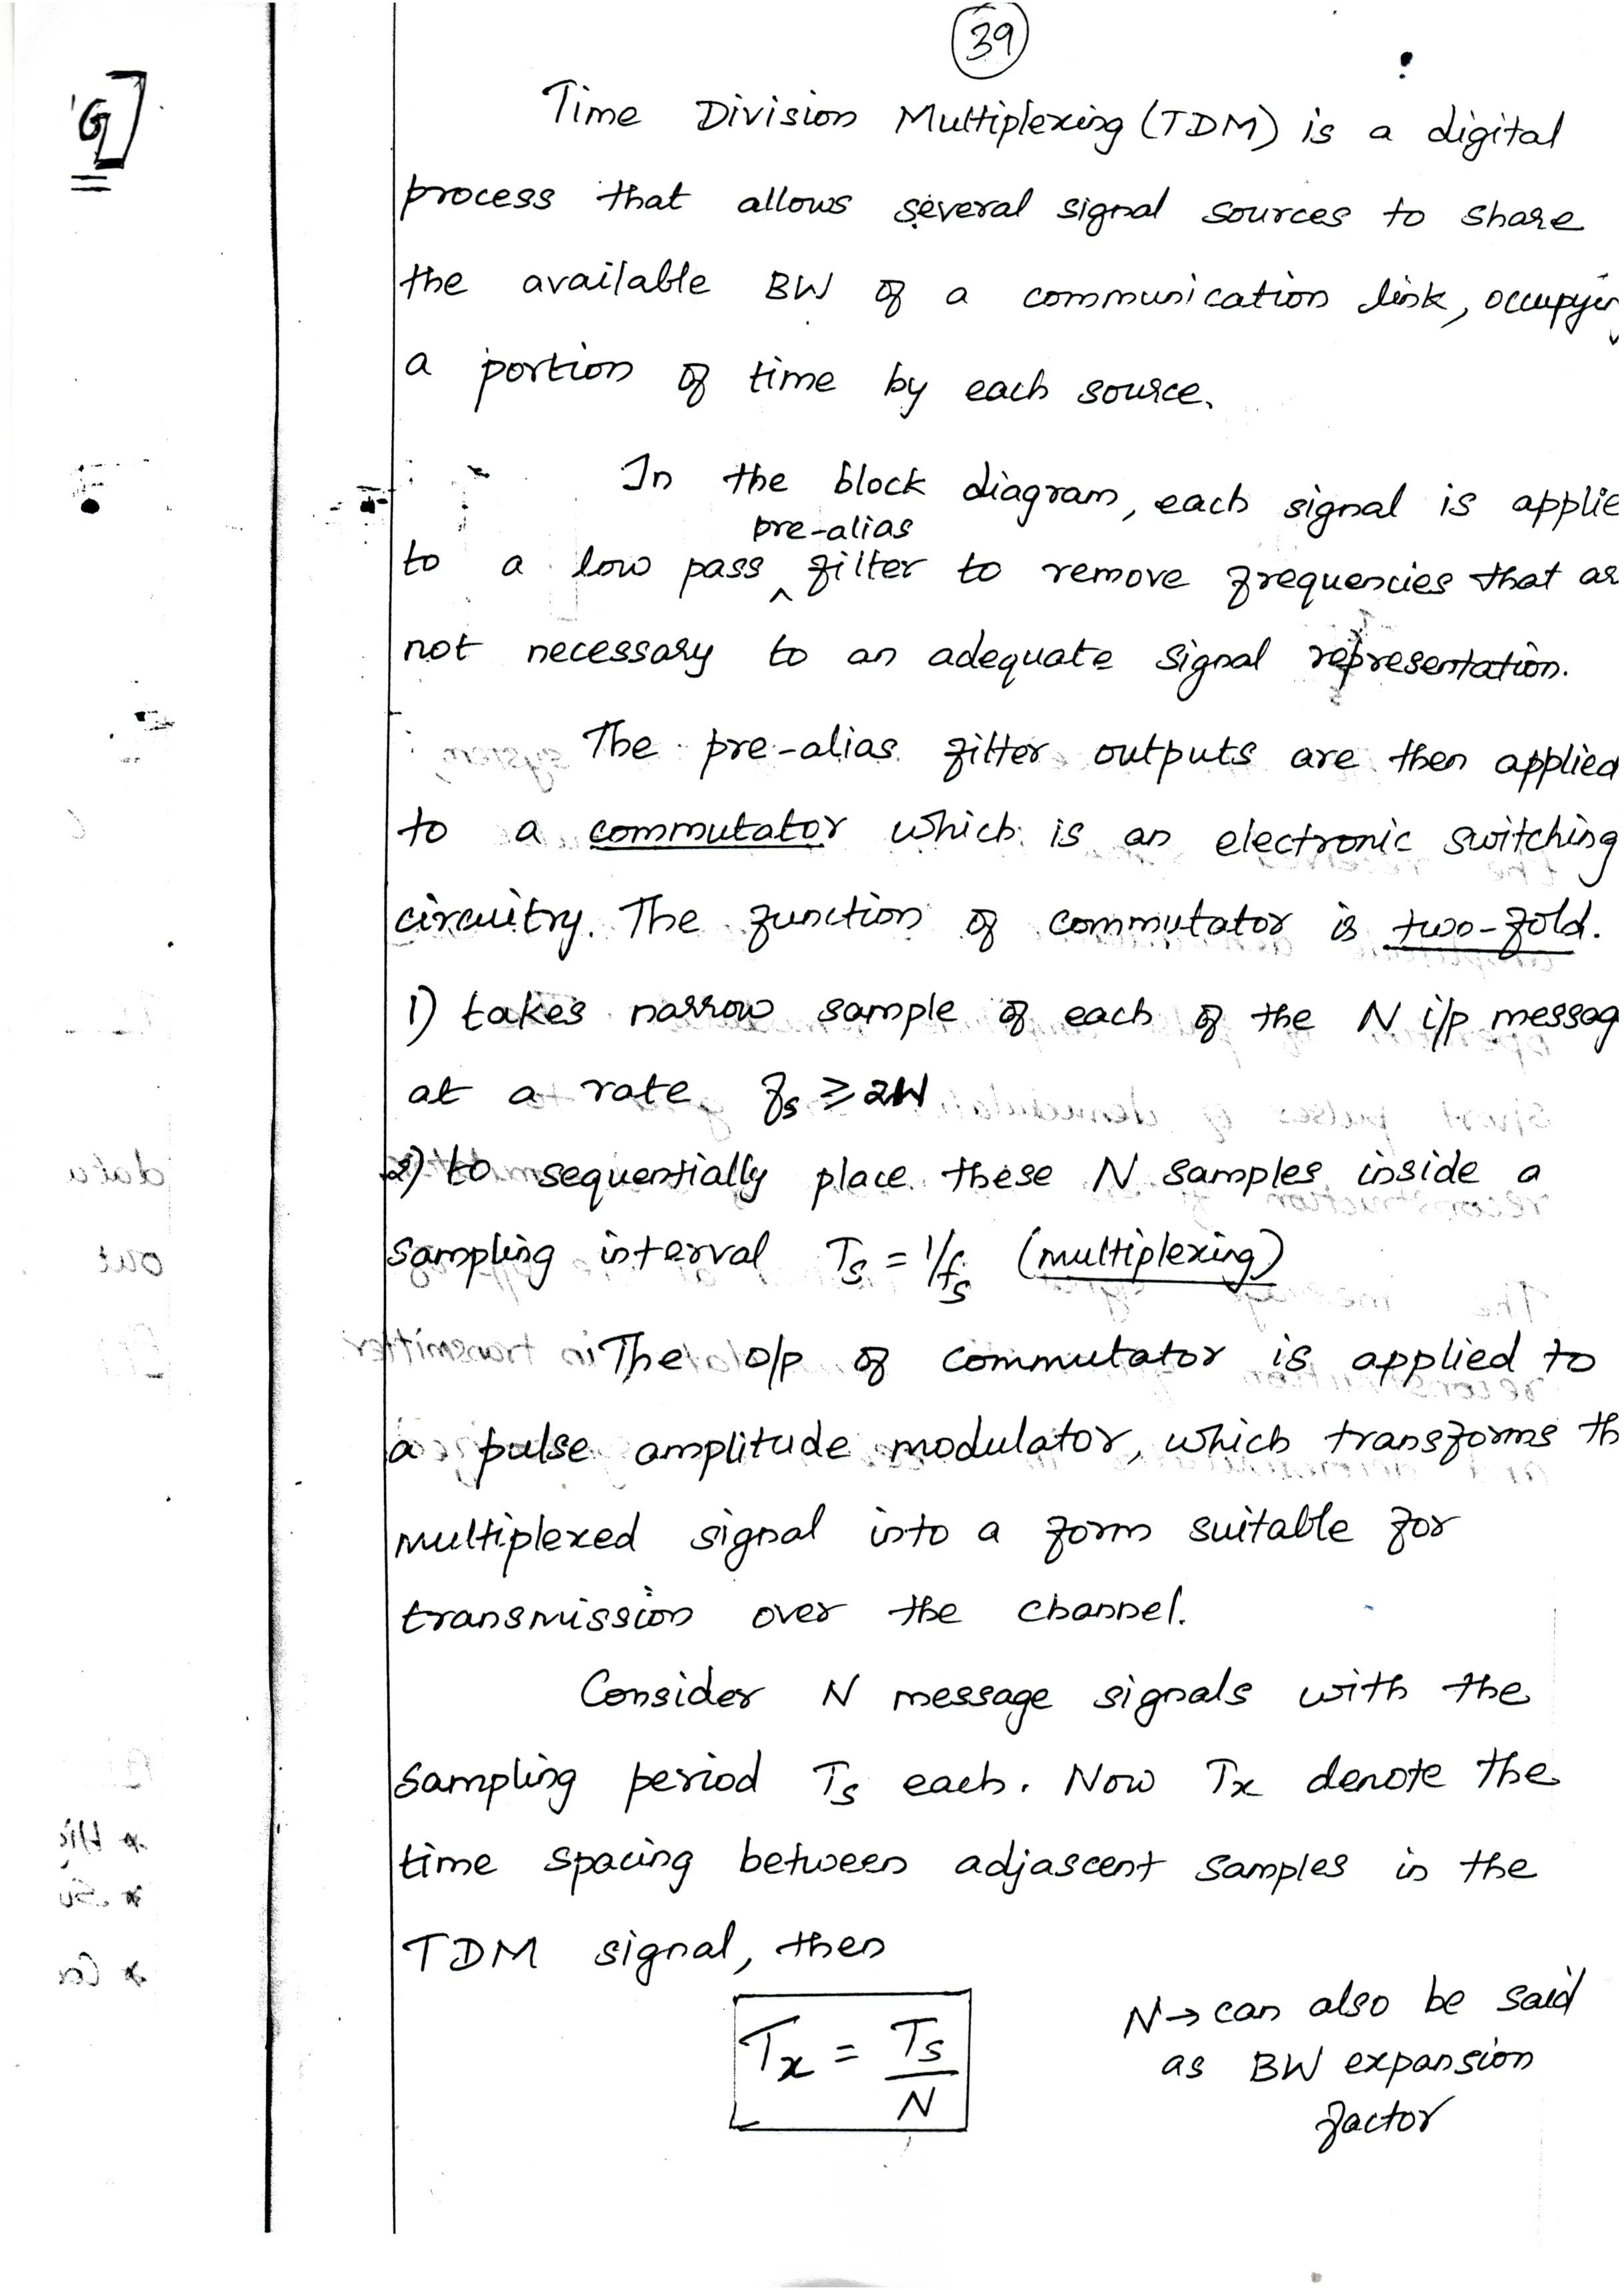 39
G]
Time Division Multiplexing (TDM) is a digital
process that allows several signal sources to share
the available BW of a communication link, occupyin
a portion of time by each source.
In the block diagram, each signal is applie
pre-alias
to a low pass ^ filter to remove frequencies that ar
not necessary to an adequate signal representation.
The pre-alias filter outputs are then applied
to a commutator which is an electronic switching
circuitry. The function of commutator is two-fold.
1) takes narrow sample of each of the N i/p messag
at a rate fs ≥ 2W
2) to sequentially place these N samples inside a
sampling interval Ts = 1/fs (multiplexing)
The o/p of commutator is applied to
a pulse amplitude modulator, which transforms th
multiplexed signal into a form suitable for
transmission over the channel.
Consider N message signals with the
sampling period Ts each. Now Tx denote the
time spacing between adjascent samples in the
TDM signal, then
Tx = Ts/N
N → can also be said
as BW expansion
factor